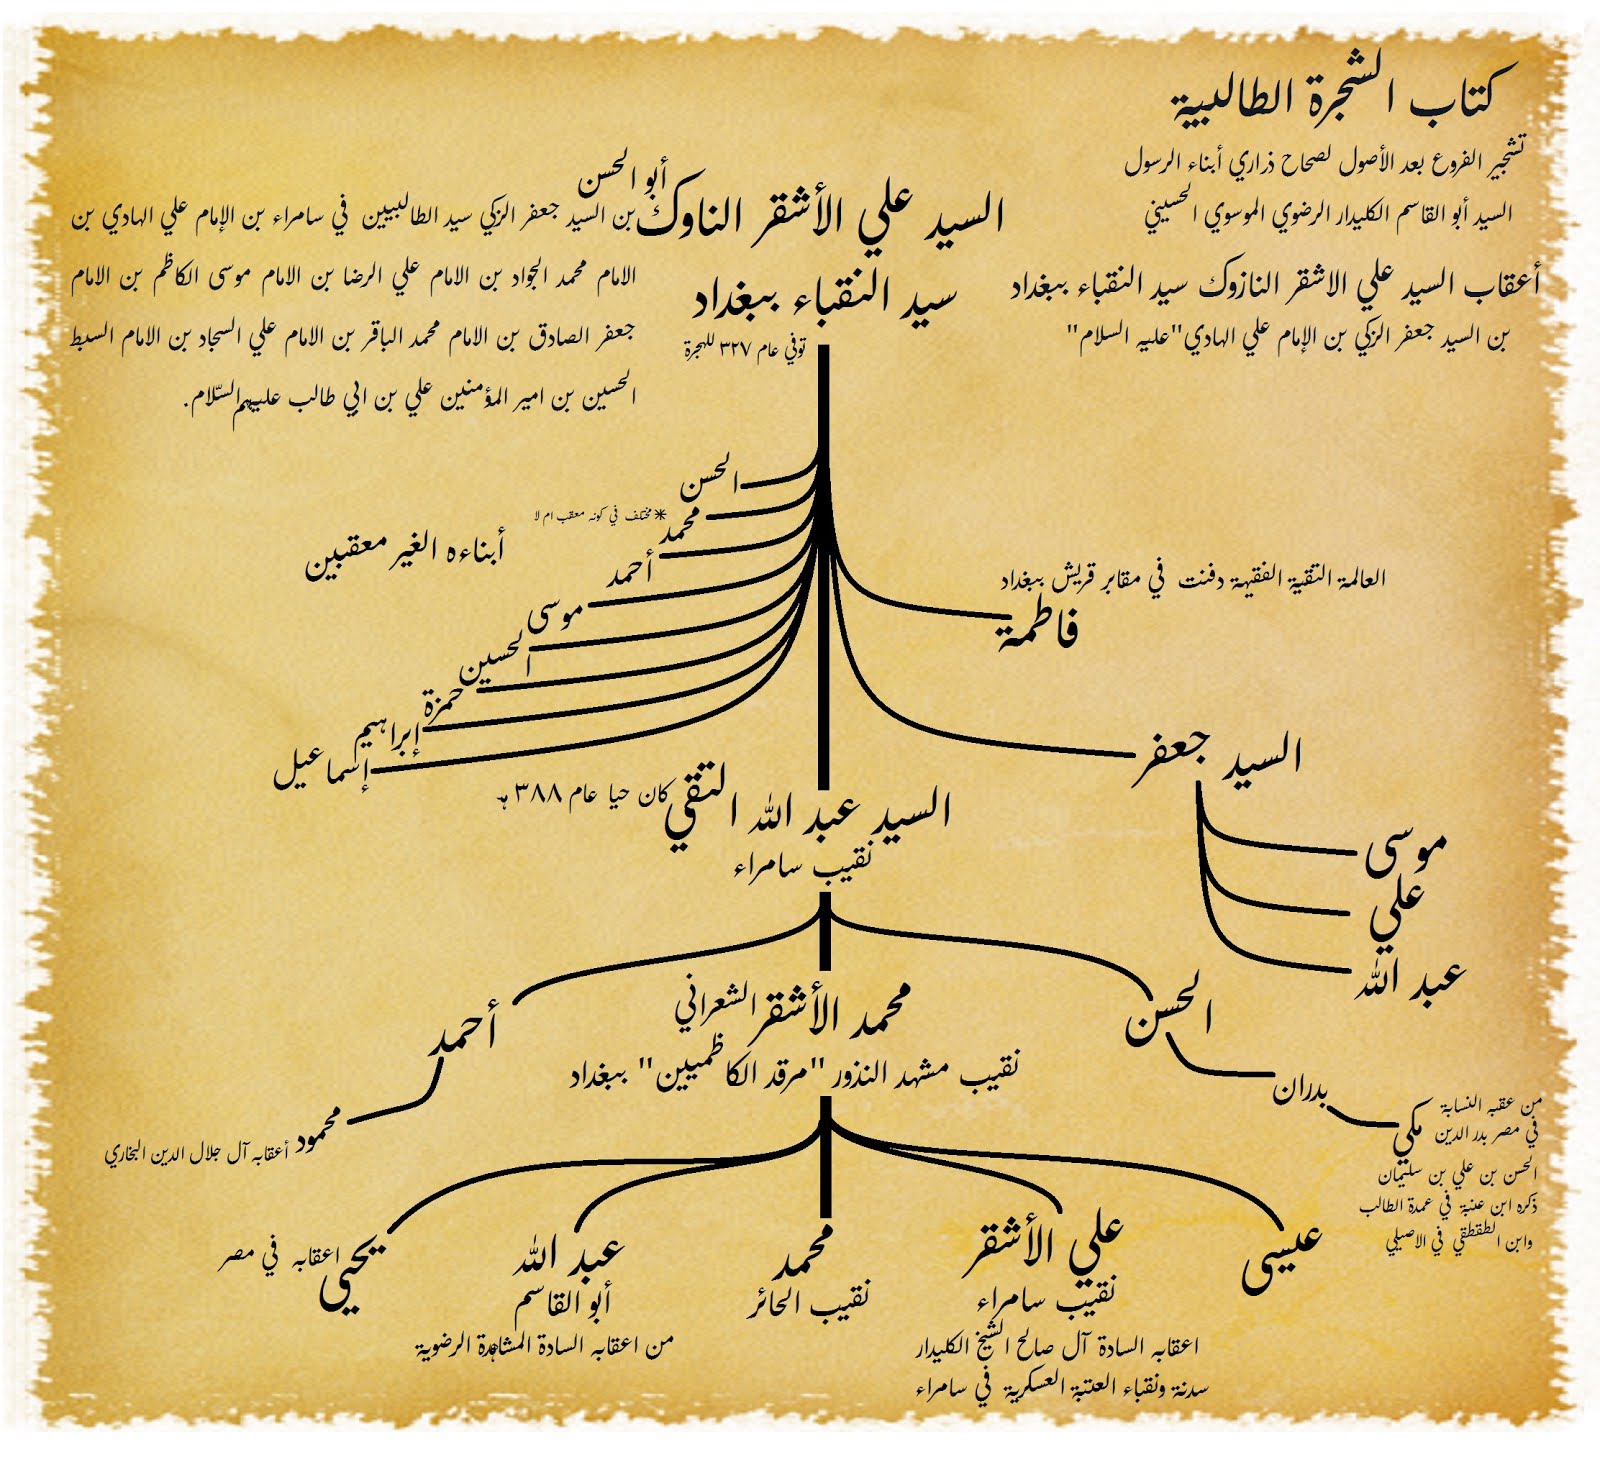 كتاب الشجرة الطالبية
تشجير الفروع بعد الأصول لصحاح ذراري أبناء الرسول
السيد أبو القاسم الكليدار الرضوي الموسوي الحسيني
أعقاب السيد علي الاشقر النازوك سيد النقباء ببغداد
بن السيد جعفر الزكي بن الإمام علي الهادي"عليه السلام"
أبو الحسن
السيد علي الأشقر الناوك
سيد النقباء ببغداد
توفي عام ٣٢٧ للهجرة
بن السيد جعفر الزكي سيد الطالبيين في سامراء بن الإمام علي الهادي بن
الامام محمد الجواد بن الامام علي الرضا بن الامام موسى الكاظم بن الامام
جعفر الصادق بن الامام محمد الباقر بن الامام علي السجاد بن الامام السبط
الحسين بن امير المؤمنين علي بن ابي طالب عليهم السلام.
الحسن
محمد
*مختلف في كونه معقب ام لا
أحمد
أبناءه الغير معقبين
موسى
الحسين
حمزة
إبراهيم
إسماعيل
العالمة التقية الفقيهة دفنت في مقابر قريش ببغداد
فاطمة
السيد جعفر
موسى
علي
عبد الله
السيد عبد الله التقي
كان حيا عام ٣٨٨ هـ
نقيب سامراء
الحسن
محمد الأشقر الشعراني
أحمد
نقيب مشهد النذور "مرقد الكاظميين" ببغداد
بدران
مكي
من عقبه النسابة
في مصر بدر الدين
الحسن بن علي بن سليمان
ذكره ابن عنبة في عمدة الطالب
وابن الطقطقي في الاصيلي
محمود
أعقابه آل جلال الدين البخاري
عيسى
علي الأشقر
نقيب سامراء
اعقابه السادة آل صالح الشيخ الكليدار
سدنة ونقباء العتبة العسكرية في سامراء
محمد
نقيب الحائر
عبد الله
أبو القاسم
من اعقابه السادة المشاهدة الرضوية
يحيى
اعقابه في مصر